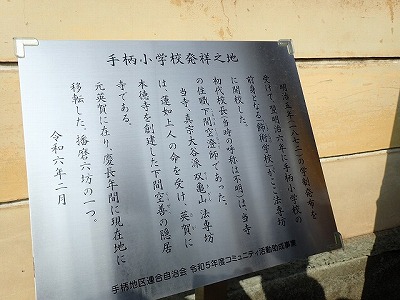 手柄小学校発祥之地
明治五年(一八七二)の学制発布を
受けて翌明治六年に手柄小学校の
前身となる「飾術学校」がここ法専坊
に開校した。
初代校長(当時の呼称は不明)は、当寺
の住職下間空澄師であった。
当寺・真宗大谷派双亀山法専坊
は、蓮如上人の命を受け、英賀に
本徳寺を創建した下間空善の隠居
寺である。
元英賀に在り、慶長年間に現在地に
移転した。播磨六坊の一つ。
令和六年二月
手柄地区連合自治会 令和5年度コミュニティ活動助成事業